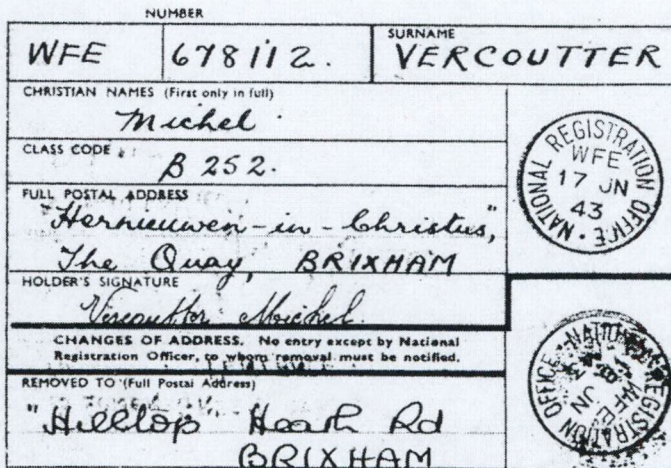 NUMBER
WFE 678112. SURNAME VERCOUTTER
CHRISTIAN NAMES (First only in full)
Michel
CLASS CODE
B 252.
FULL POSTAL ADDRESS
"Hernieuwen-in-Christus",
The Quay, BRIXHAM
HOLDER'S SIGNATURE
Vercoutter Michel.
CHANGES OF ADDRESS. No entry except by National
Registration Officer, to whom removal must be notified.
REMOVED TO (Full Postal Address)
"Hilltop" Heath Rd
BRIXHAM
NATIONAL REGISTRATION OFFICE
WFE
17 JN
43
NATIONAL REGISTRATION OFFICE
WFE
JN